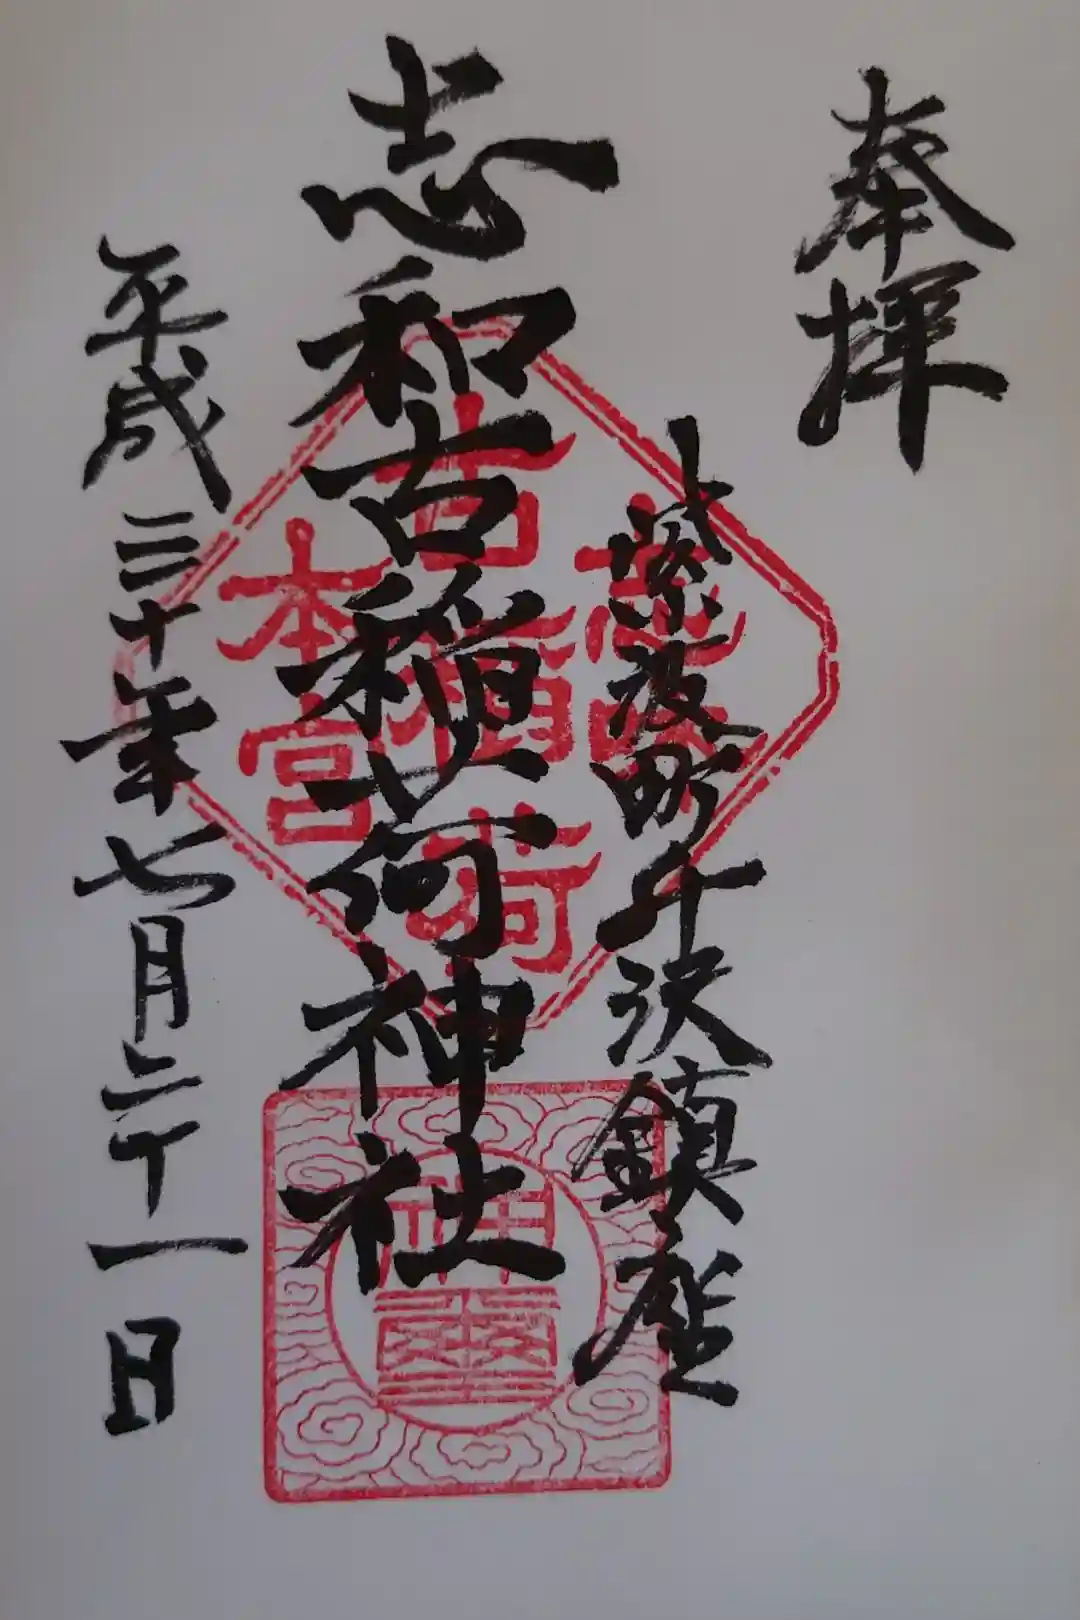 奉拝
紫波町升沢鎮座
志和古稲荷神社
平成三十年七月二十一日
志和
古稲荷
本宮